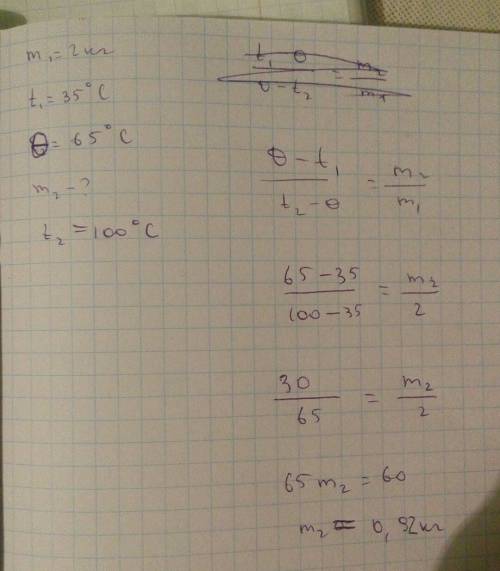 m₁ = 2 кг
t₁ = 35°C
θ = 65°C
m₂ - ?
t₂ = 100°C
(θ - t₁) / (t₂ - θ) = m₂ / m₁
(65 - 35) / (100 - 35) = m₂ / 2
30 / 65 = m₂ / 2
65 m₂ = 60
m₂ = 0,92 кг